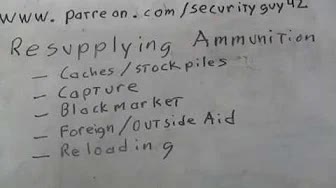 www.patreon.com/securityguy42
Resupplying Ammunition
— Caches/stockpiles
— Capture
— Blackmarket
— Foreign/outside Aid
— Reloading